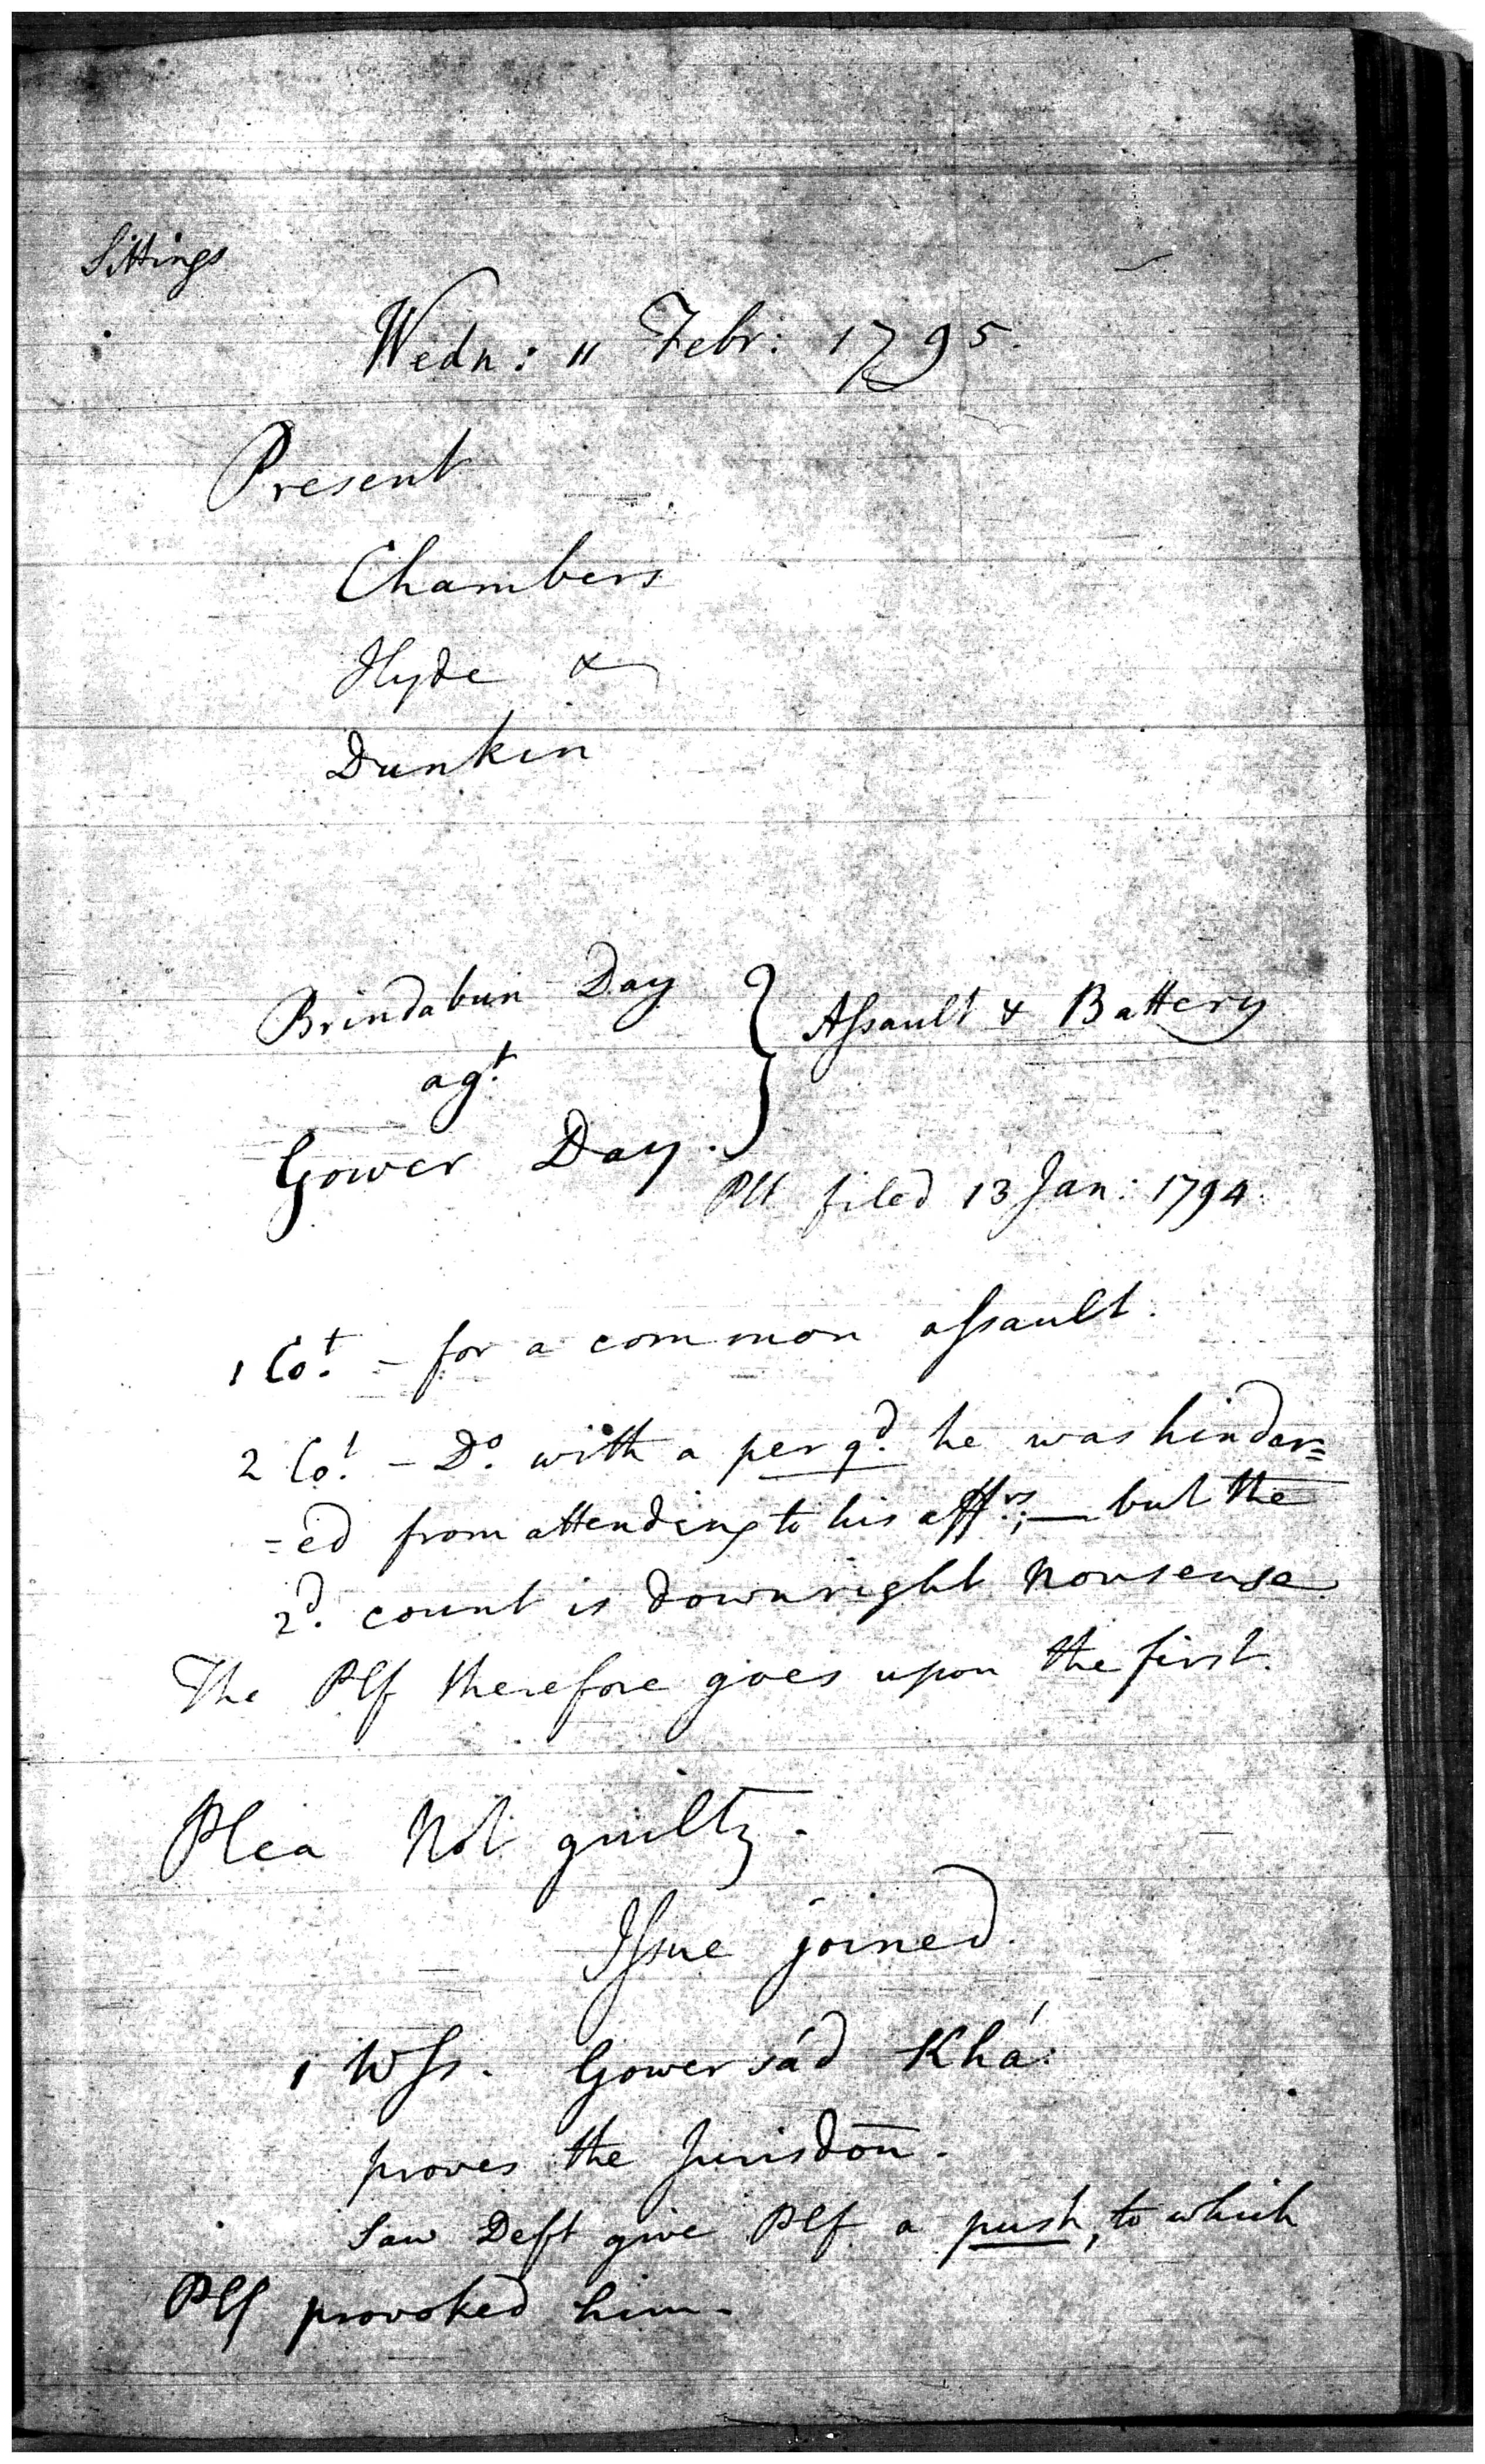 Sittings
Wedn: 11 Febr: 1795.
Present
Chambers
Hyde &
Dunkin
Brindabun Day } Assault & Battery
agt.
Gower Day.
Plt filed 13 Jan: 1794.
1 Cot. - for a common assault.
2 Cot. - Do. with a per qd. he was hinder=
=ed from attending to his affrs; — but the
2d. count is downright nonsense
The Plf therefore goes upon the first.
Plea Not guilty.
Issue joined.
1 Wss. Gowersád Khá.
proves the Jurisdon.
Saw Deft give Plf a push, to which
Plf provoked him.